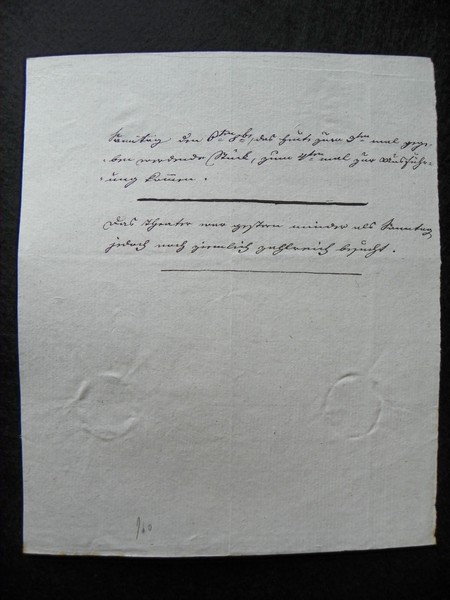 Sonntag den 6ten 8b, das heute zum 3ten mal gege-
-ben werdende Stück, zum 4ten mal zur Auffüh-
-rung kommen.
Das Theater war gestern minder als Sonntag,
jedoch noch ziemlich zahlreich besucht.